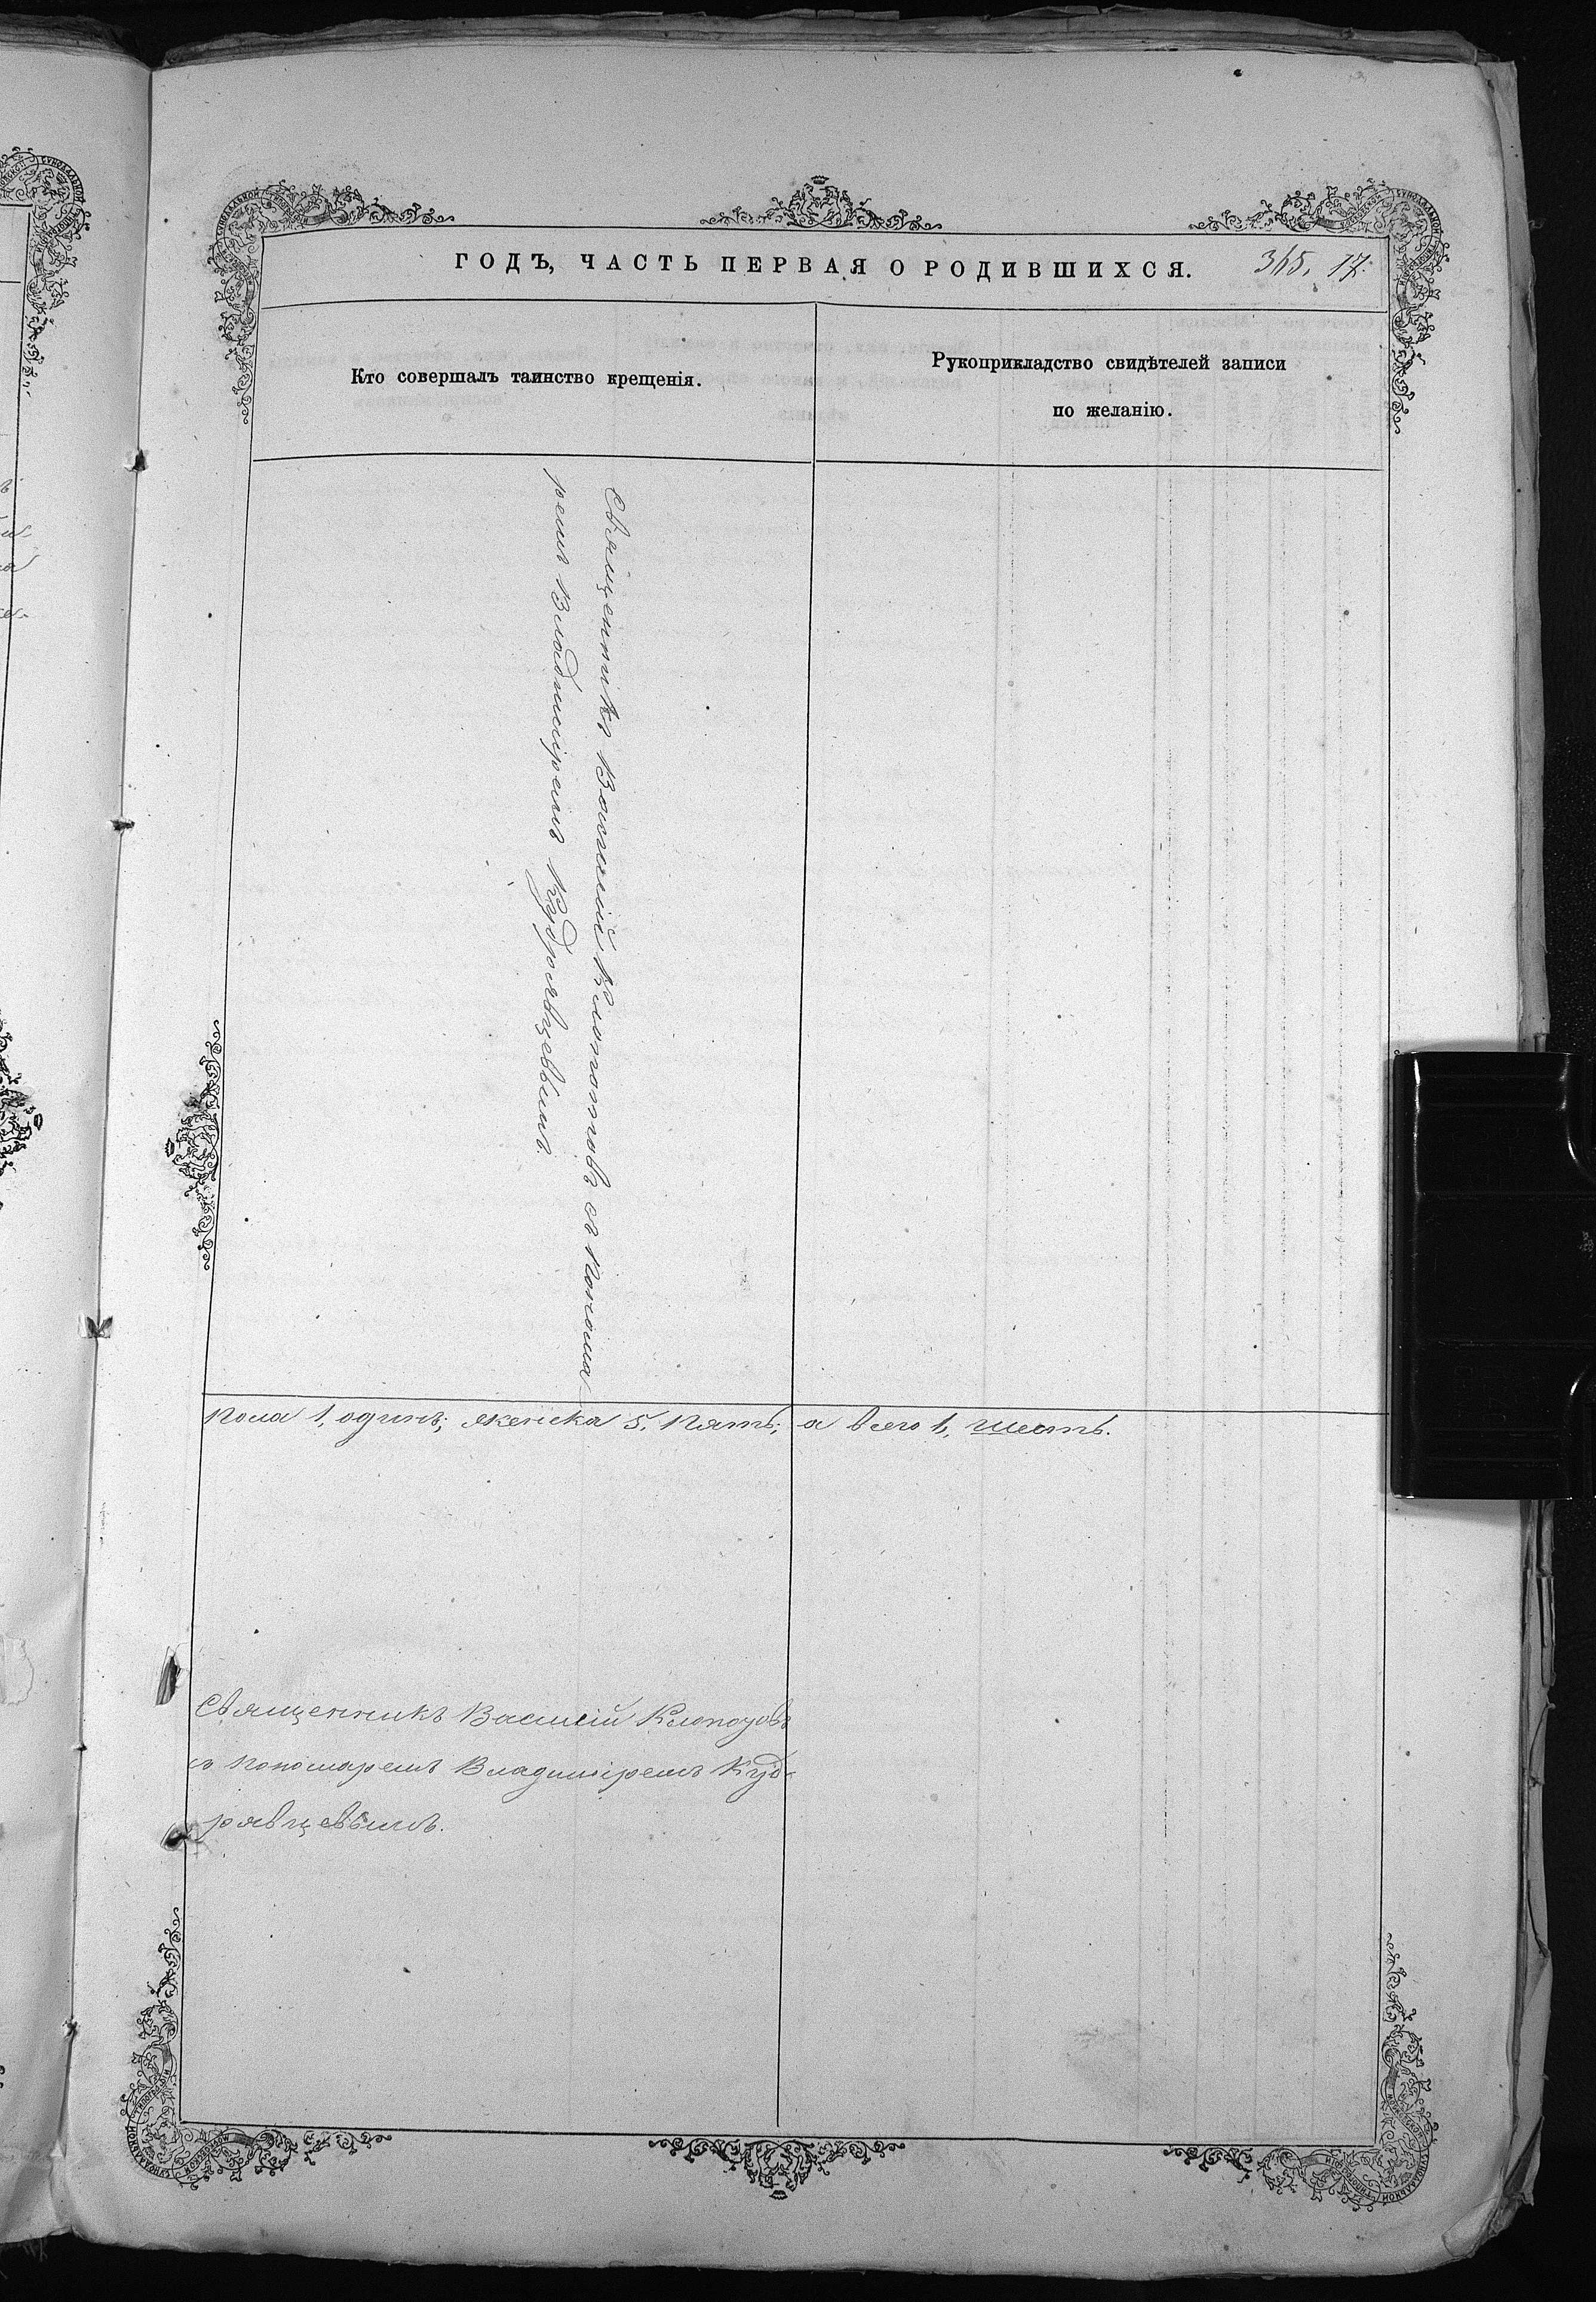 ГОДЪ, ЧАСТЬ ПЕРВАЯ О РОДИВШИХСЯ.
365. 17.
Кто совершалъ таинство крещенія.
Рукоприкладство свидѣтелей записи
по желанію.
Священникъ Василій Клопотовъ съ понома
ремъ Владиміремъ Кудрявцевымъ.
пола 1, одинъ; женска 5, пять; а всего 6, шесть.
Священникъ Василій Клопотовъ
съ пономаремъ Владиміремъ Куд-
рявцевымъ.